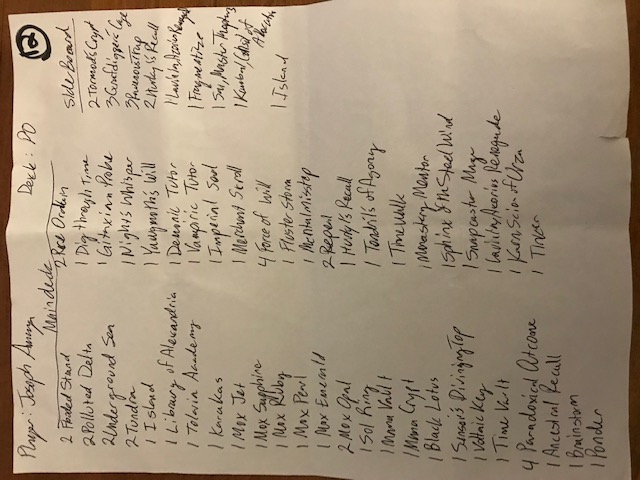 Player: Joseph
Deck: PO
12
Maindeck
2 Flooded Strand
2 Polluted Delta
2 Underground Sea
2 Tundra
1 Island
1 Library of Alexandria
1 Tolaria Academy
1 Karakas
1 Mox Jet
1 Mox Sapphire
1 Mox Ruby
1 Mox Pearl
1 Mox Emerald
2 Mox Opal
1 Sol Ring
1 Mana Vault
1 Mana Crypt
1 Black Lotus
1 Sensei's Divining Top
1 Voltaic Key
1 Time Vault
4 Paradoxical Outcome
1 Ancestral Recall
1 Brainstorm
1 Ponder
2 Preordain
1 Dig through Time
1 Gitaxian Probe
1 Night's Whisper
1 Yawgmoth's Will
1 Demonic Tutor
1 Vampiric Tutor
1 Imperial Seal
1 Merchant Scroll
4 Force of Will
1 Flusterstorm
1 Mental misstep
2 Repeal
1 Hurkyl's Recall
1 Tendril's of Agony
1 Time Walk
1 Monastery Mentor
1 Sphinx of the Steel Wind
1 Snapcaster Mage
1 Lavinia, Azorius Renegade
1 Karn Scion of Urza
1 Tinker
Side Board
2 Tormod's Crypt
3 Grafdigger's Cage
3 Ravenous Trap
2 Hurkyl's Recall
1 Lavinia, Azorius Renegade
1 Fragmentize
1 Sai, Master Thopterist
1 Kambal, Consul of
Allocation
1 Island